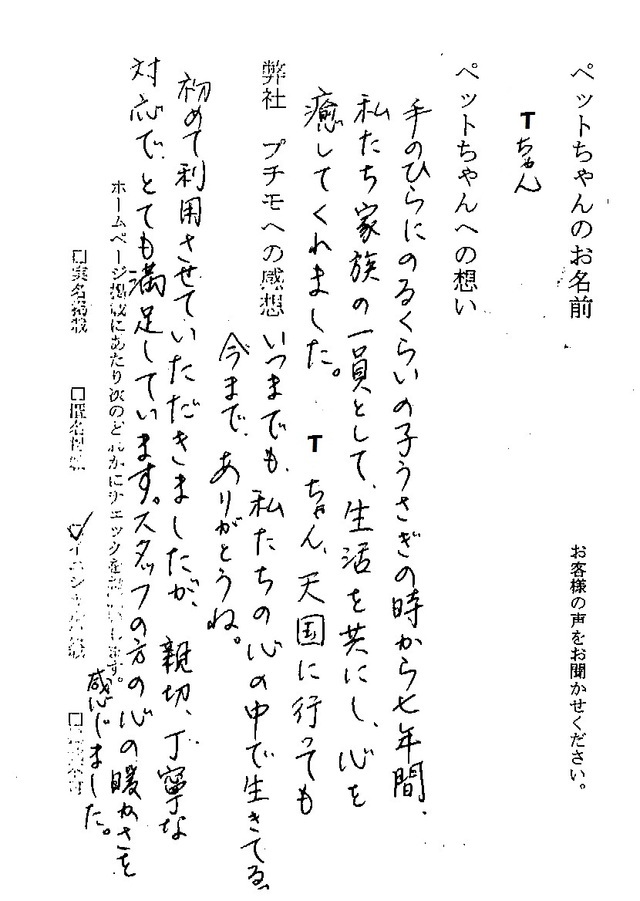 お客様の声をお聞かせください。
ペットちゃんのお名前
Tちゃん
ペットちゃんへの想い
手のひらにのるくらいの子うさぎの時から七年間、
私たち家族の一員として、生活を共にし、心を
癒してくれました。 Tちゃん、天国に行っても
いつまでも、私たちの心の中で生きてる。
今まで、ありがとうね。
弊社 プチモへの感想
初めて利用させていただきましたが、親切、丁寧な
対応で、とても満足しています。スタッフの方の心の暖かさを
感じました。
ホームページ掲載にあたり次のどれかにチェックを
□実名掲載
□匿名掲載
イニシャル掲載